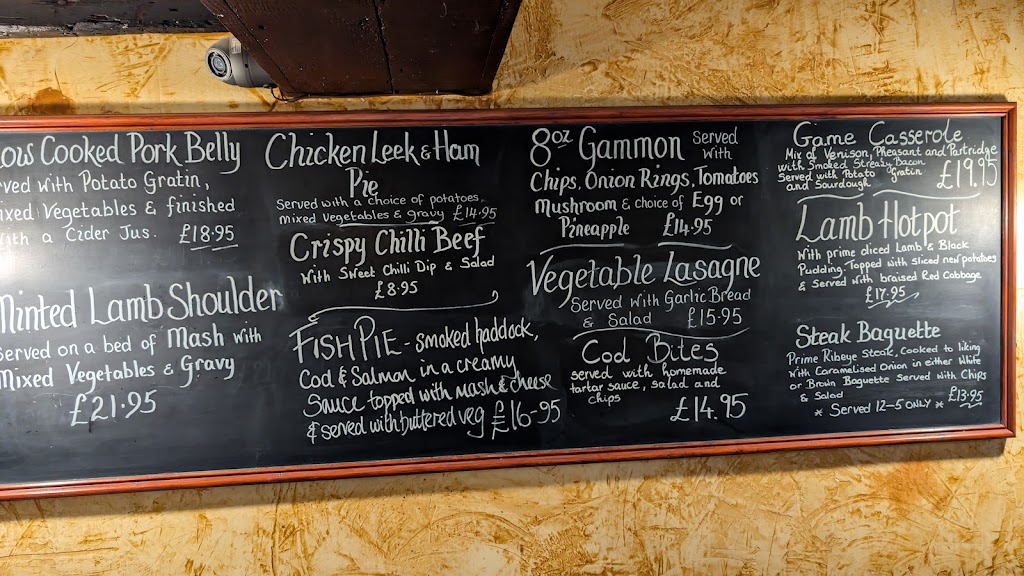 ow Cooked Pork Belly
rved with Potato Gratin,
ixed Vegetables & finished
ith a Cider Jus. £18.95
Minted Lamb Shoulder
Served on a bed of Mash with
Mixed Vegetables & Gravy
£21.95
Chicken Leek & Ham
Pie
Served with a choice of potatoes,
mixed Vegetables & gravy £14.95
Crispy Chilli Beef
With Sweet Chilli Dip & Salad
£8.95
FISH PIE - smoked haddock,
Cod & Salmon in a creamy
Sauce topped with mash & cheese
& served with buttered veg £16-95
8oz Gammon Served
with
Chips, Onion Rings, Tomatoes
Mushroom & choice of Egg or
Pineapple £14.95
Vegetable Lasagne
Served with Garlic Bread
& Salad £15.95
Cod Bites
served with homemade
tartar sauce, salad and
chips
£14.95
Game Casserole
Mix of Venison, Pheasant and Partridge
with Smoked Streaky Bacon
Served with Potato Gratin
and Sourdough. £19.95
Lamb Hotpot
With prime diced Lamb & Black
Pudding, Topped with sliced new potatoes
& Served with braised Red Cabbage
£17.95
Steak Baguette
Prime Ribeye Steak, Cooked to liking
With Caramelised Onion in either White
or Brown Baguette Served with Chips
& Salad £13.95
* Served 12-5 ONLY *